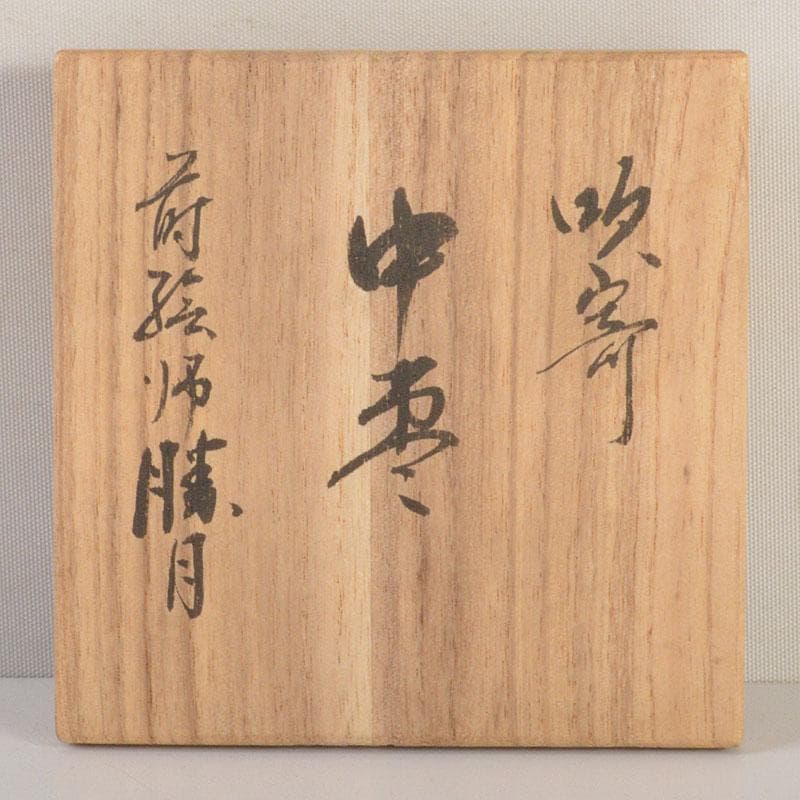 吹寄
中棗
蒔絵師勝月